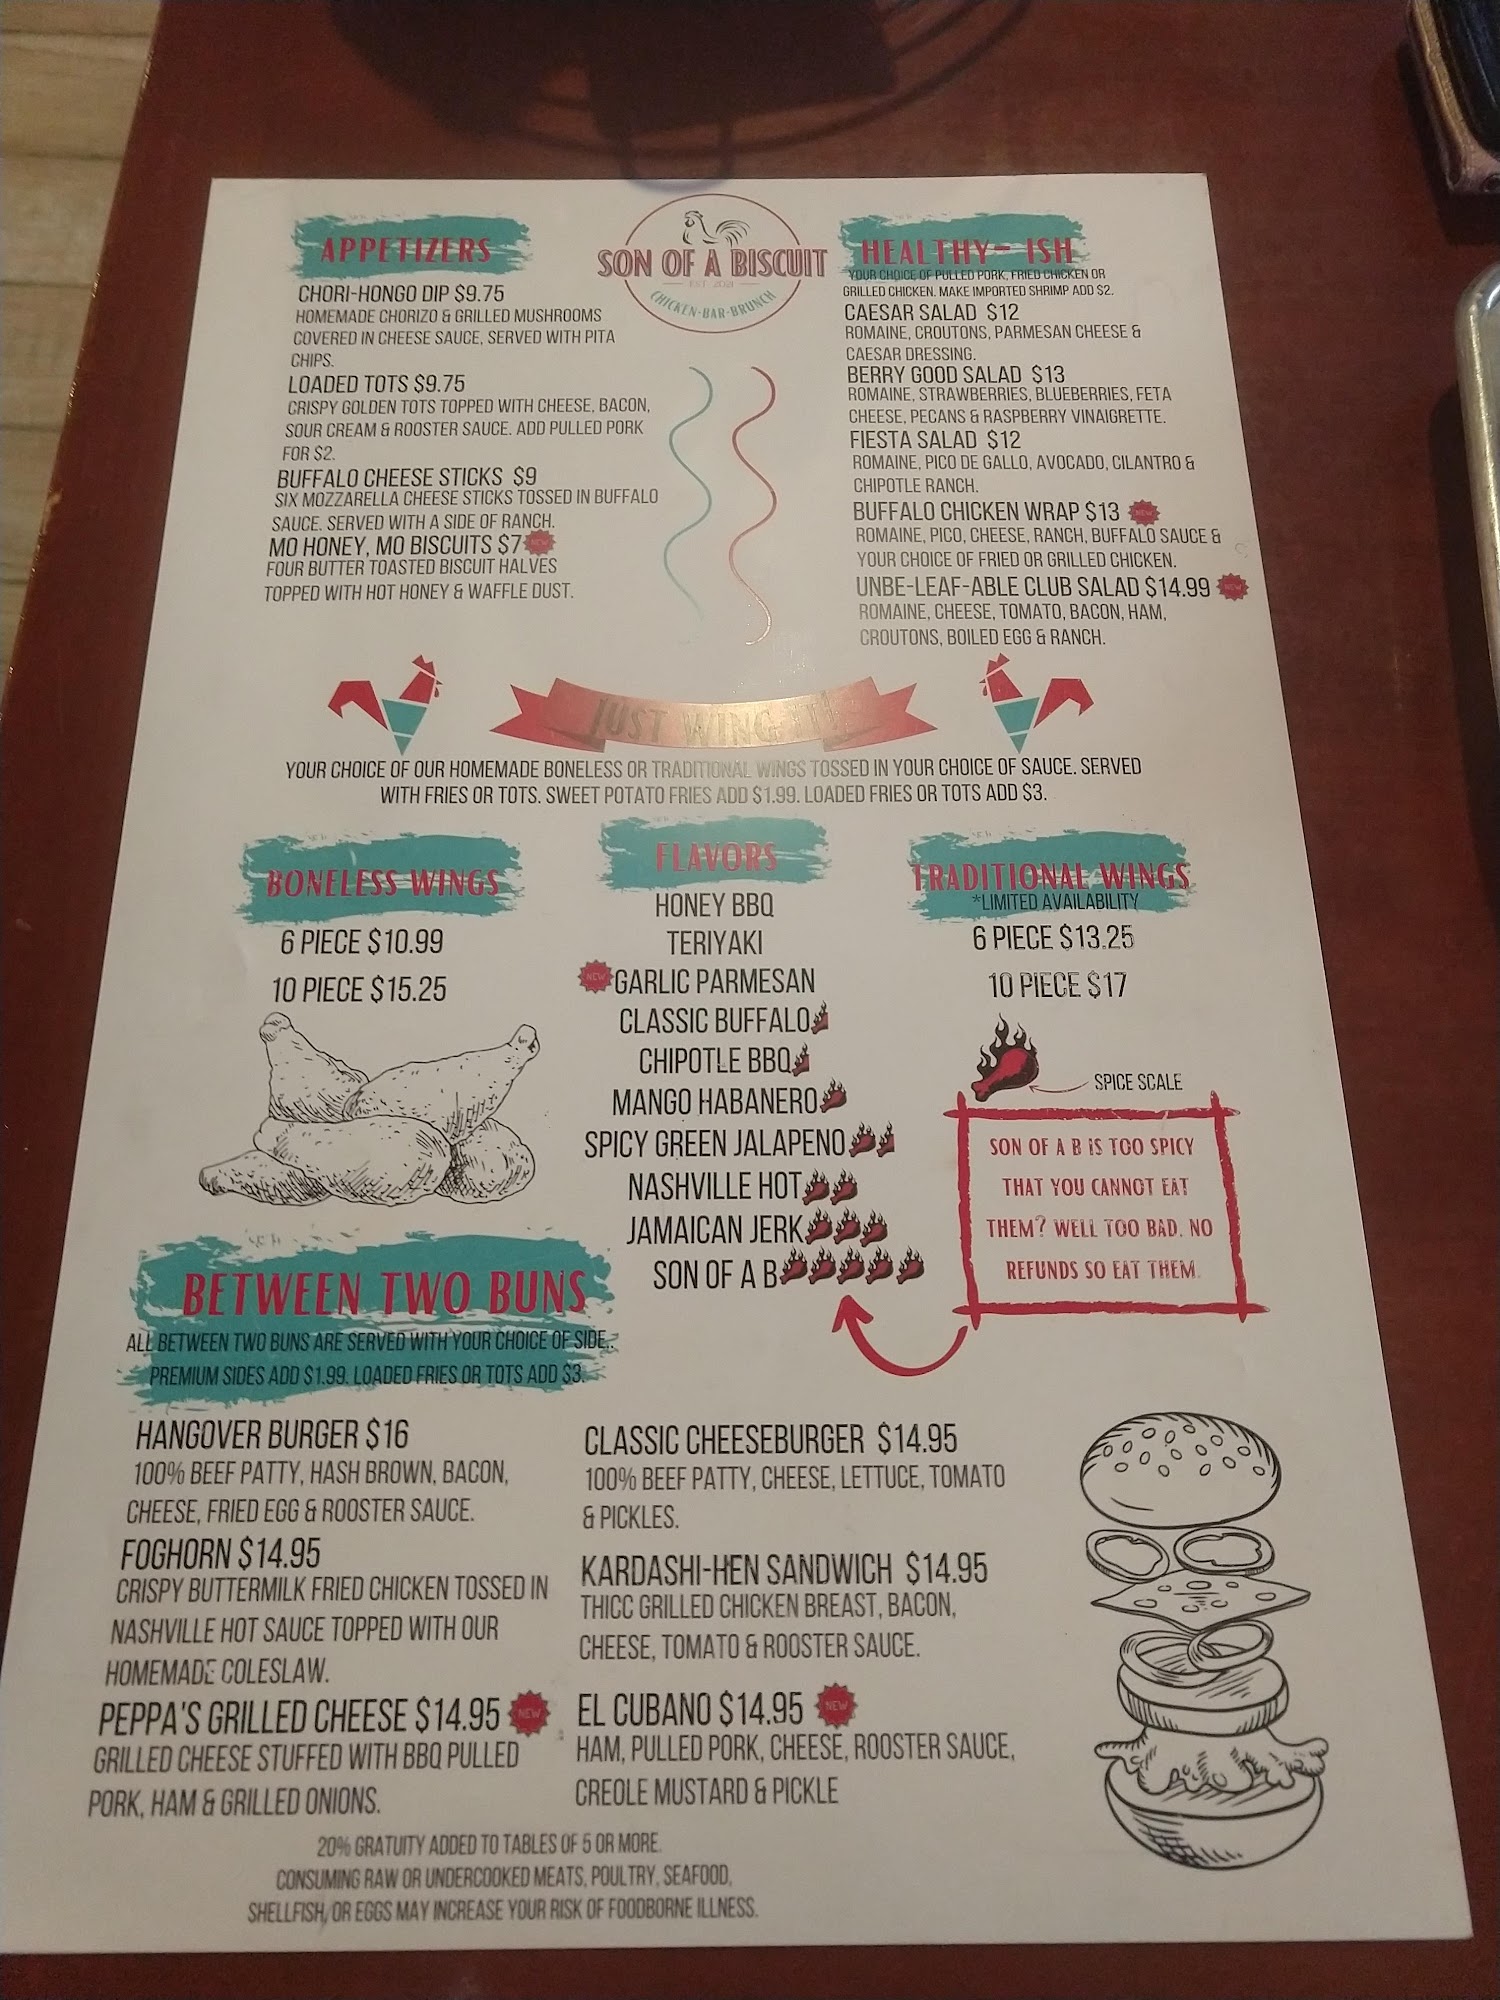 APPETIZERS
CHORI-HONGO DIP $9.75
HOMEMADE CHORIZO & GRILLED MUSHROOMS
COVERED IN CHEESE SAUCE, SERVED WITH PITA
CHIPS.
LOADED TOTS $9.75
CRISPY GOLDEN TOTS TOPPED WITH CHEESE, BACON,
SOUR CREAM & ROOSTER SAUCE. ADD PULLED PORK
FOR $2.
BUFFALO CHEESE STICKS $9
SIX MOZZARELLA CHEESE STICKS TOSSED IN BUFFALO
SAUCE. SERVED WITH A SIDE OF RANCH.
MO HONEY, MO BISCUITS $7 NEW
FOUR BUTTER TOASTED BISCUIT HALVES
TOPPED WITH HOT HONEY & WAFFLE DUST.
SON OF A BISCUIT
EST 2021
CHICKEN-BAR-BRUNCH
HEALTHY- ISH
YOUR CHOICE OF PULLED PORK, FRIED CHICKEN OR
GRILLED CHICKEN. MAKE IMPORTED SHRIMP ADD $2.
CAESAR SALAD $12
ROMAINE, CROUTONS, PARMESAN CHEESE &
CAESAR DRESSING.
BERRY GOOD SALAD $13
ROMAINE, STRAWBERRIES, BLUEBERRIES, FETA
CHEESE, PECANS & RASPBERRY VINAIGRETTE.
FIESTA SALAD $12
ROMAINE, PICO DE GALLO, AVOCADO, CILANTRO &
CHIPOTLE RANCH.
BUFFALO CHICKEN WRAP $13 NEW
ROMAINE, PICO, CHEESE, RANCH, BUFFALO SAUCE &
YOUR CHOICE OF FRIED OR GRILLED CHICKEN.
UNBE-LEAF-ABLE CLUB SALAD $14.99 NEW
ROMAINE, CHEESE, TOMATO, BACON, HAM,
CROUTONS, BOILED EGG & RANCH.
JUST WING IT!
YOUR CHOICE OF OUR HOMEMADE BONELESS OR TRADITIONAL WINGS TOSSED IN YOUR CHOICE OF SAUCE. SERVED
WITH FRIES OR TOTS. SWEET POTATO FRIES ADD $1.99. LOADED FRIES OR TOTS ADD $3.
BONELESS WINGS
6 PIECE $10.99
10 PIECE $15.25
FLAVORS
HONEY BBQ
TERIYAKI
NEW GARLIC PARMESAN
CLASSIC BUFFALO
CHIPOTLE BBQ
MANGO HABANERO
SPICY GREEN JALAPENO
NASHVILLE HOT
JAMAICAN JERK
SON OF A B
TRADITIONAL WINGS
*LIMITED AVAILABILITY
6 PIECE $13.25
10 PIECE $17
SPICE SCALE
SON OF A B IS TOO SPICY
THAT YOU CANNOT EAT
THEM? WELL TOO BAD. NO
REFUNDS SO EAT THEM.
BETWEEN TWO BUNS
ALL BETWEEN TWO BUNS ARE SERVED WITH YOUR CHOICE OF SIDE..
PREMIUM SIDES ADD $1.99. LOADED FRIES OR TOTS ADD $3.
HANGOVER BURGER $16
100% BEEF PATTY, HASH BROWN, BACON,
CHEESE, FRIED EGG & ROOSTER SAUCE.
FOGHORN $14.95
CRISPY BUTTERMILK FRIED CHICKEN TOSSED IN
NASHVILLE HOT SAUCE TOPPED WITH OUR
HOMEMADE COLESLAW.
PEPPA'S GRILLED CHEESE $14.95 NEW
GRILLED CHEESE STUFFED WITH BBQ PULLED
PORK, HAM & GRILLED ONIONS.
CLASSIC CHEESEBURGER $14.95
100% BEEF PATTY, CHEESE, LETTUCE, TOMATO
& PICKLES.
KARDASHI-HEN SANDWICH $14.95
THICC GRILLED CHICKEN BREAST, BACON,
CHEESE, TOMATO & ROOSTER SAUCE.
EL CUBANO $14.95 NEW
HAM, PULLED PORK, CHEESE, ROOSTER SAUCE,
CREOLE MUSTARD & PICKLE
20% GRATUITY ADDED TO TABLES OF 5 OR MORE.
CONSUMING RAW OR UNDERCOOKED MEATS, POULTRY, SEAFOOD,
SHELLFISH, OR EGGS MAY INCREASE YOUR RISK OF FOODBORNE ILLNESS.